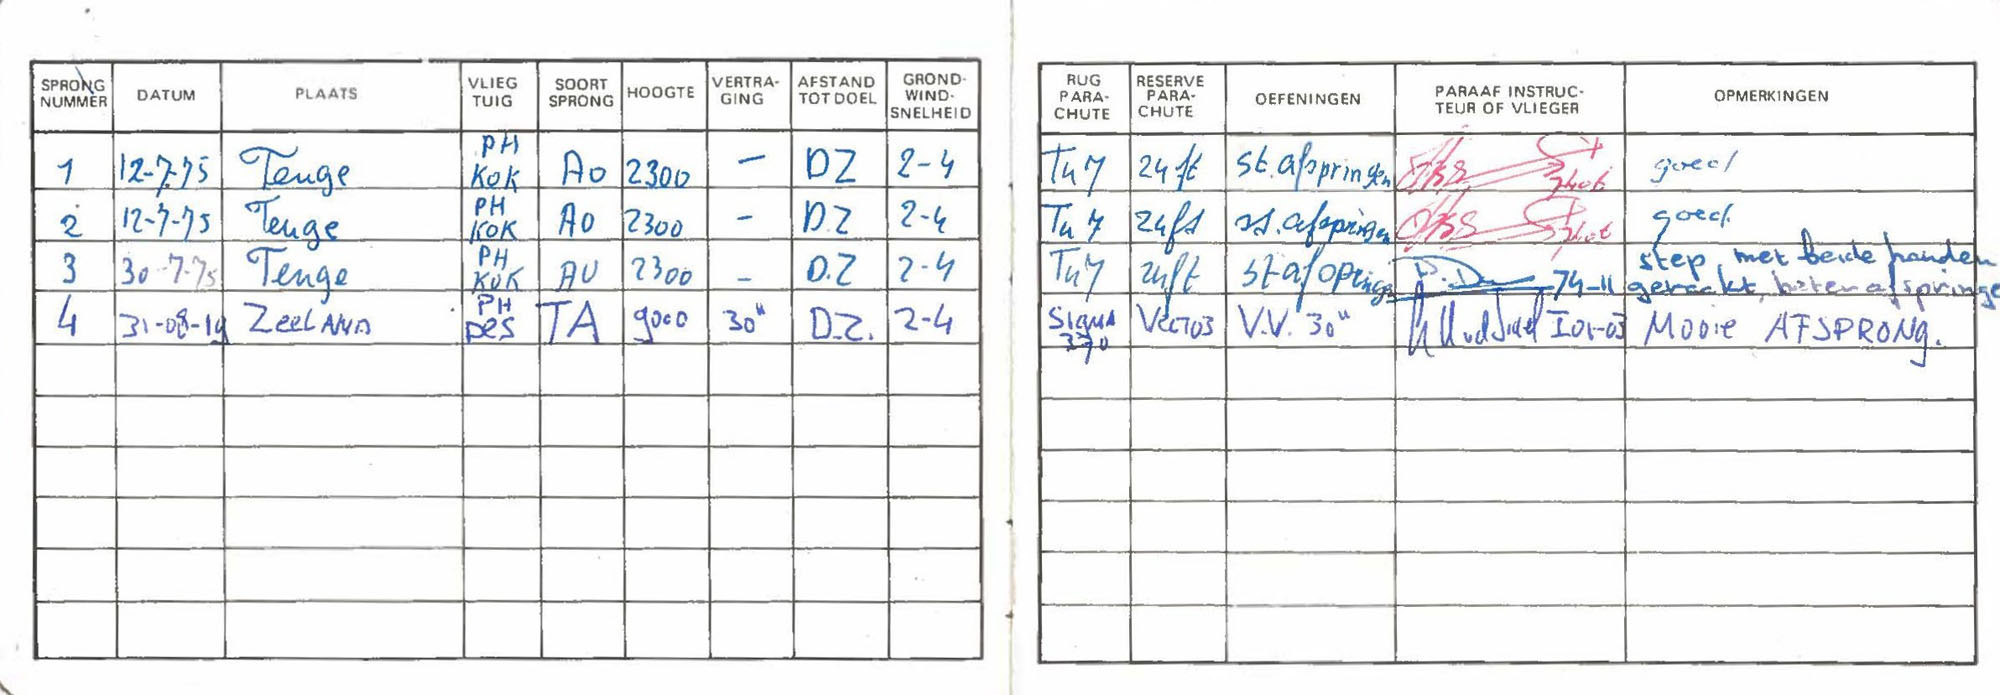 SPRONG NUMMER DATUM PLAATS VLIEG TUIG SOORT SPRONG HOOGTE VERTRA- GING AFSTAND TOT DOEL GROND- WIND- SNELHEID RUG PARA- CHUTE RESERVE PARA- CHUTE OEFENINGEN PARAAF INSTRUC- TEUR OF VLIEGER OPMERKINGEN
1 12-7-75 Tenge PH KOK AO 2300 - DZ 2-4 Tu 7 24 ft st. afspringen goed
2 12-7-75 Tenge PH KOK AO 2300 - D.Z 2-4 Tu 7 24 ft st. afspringen goed
3 30-7-75 Tenge PH KOK AO 2300 - D.Z 2-4 Tu 7 24 ft st 74-11 step, met beide handen geraakt, beter afspringe
4 31-08-19 ZeeLAND PH DES TA 9000 30" D.Z. 2-4 SIGMA 370 VECTO3 V.V. 30" I01-03 MOOIE AFSPRONG.